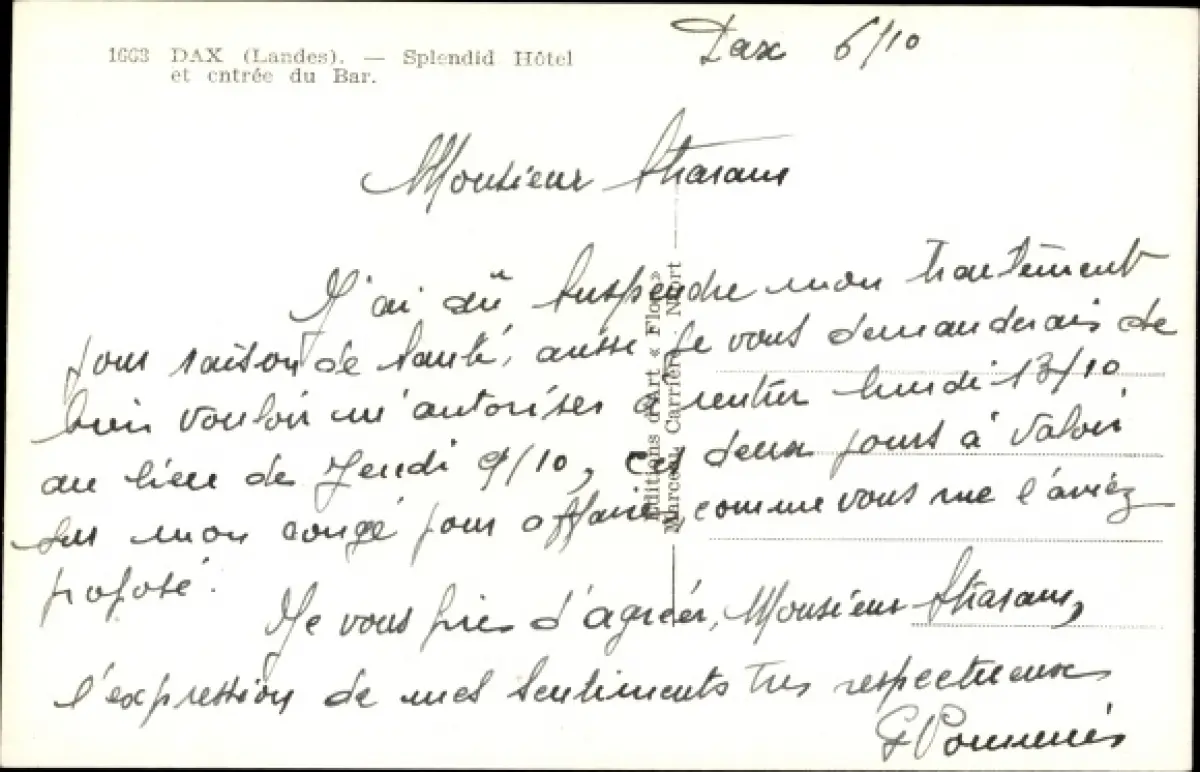 1663 DAX (Landes). — Splendid Hôtel
et entrée du Bar.
Dax 6/10
Monsieur
J'ai dû suspendre mon traitement
pour raison de santé, aussi je vous demanderais de
bien vouloir m'autoriser à rentrer lundi 13/10
au lieu de Jeudi 9/10, Ces deux jours à valoir
sur mon congé pour affaire, comme vous me l'aviez
proposé.
Je vous prie d'agréer, Monsieur
l'expression de mes sentiments très respectueux
Editions d'Art « Flor »
Marcel Carrière - Niort